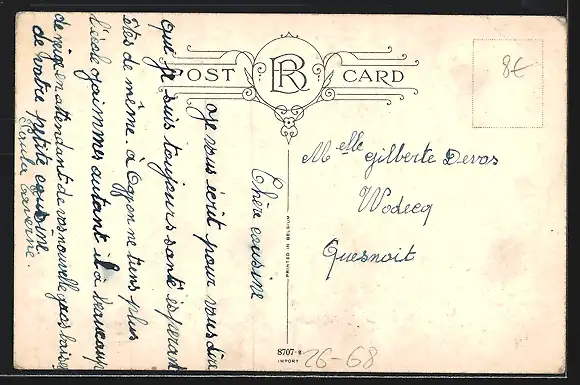 POST CARD
BR
8€
Chère cousine
Je vous écrit pour vous dire
que je suis toujours santé espérant
êtes de même. à Ogyon ne tiens plus
l'école j'aimmes autant il à beaucoup
de neige en attendant de vos nouvelle gros baiser
de votre petite cousine
Paula Laverine.
Melle Gilberte Devos
Wodecq
Quesnoit
PRINTED IN BELGIUM
8707-R
IMPORT
26-68